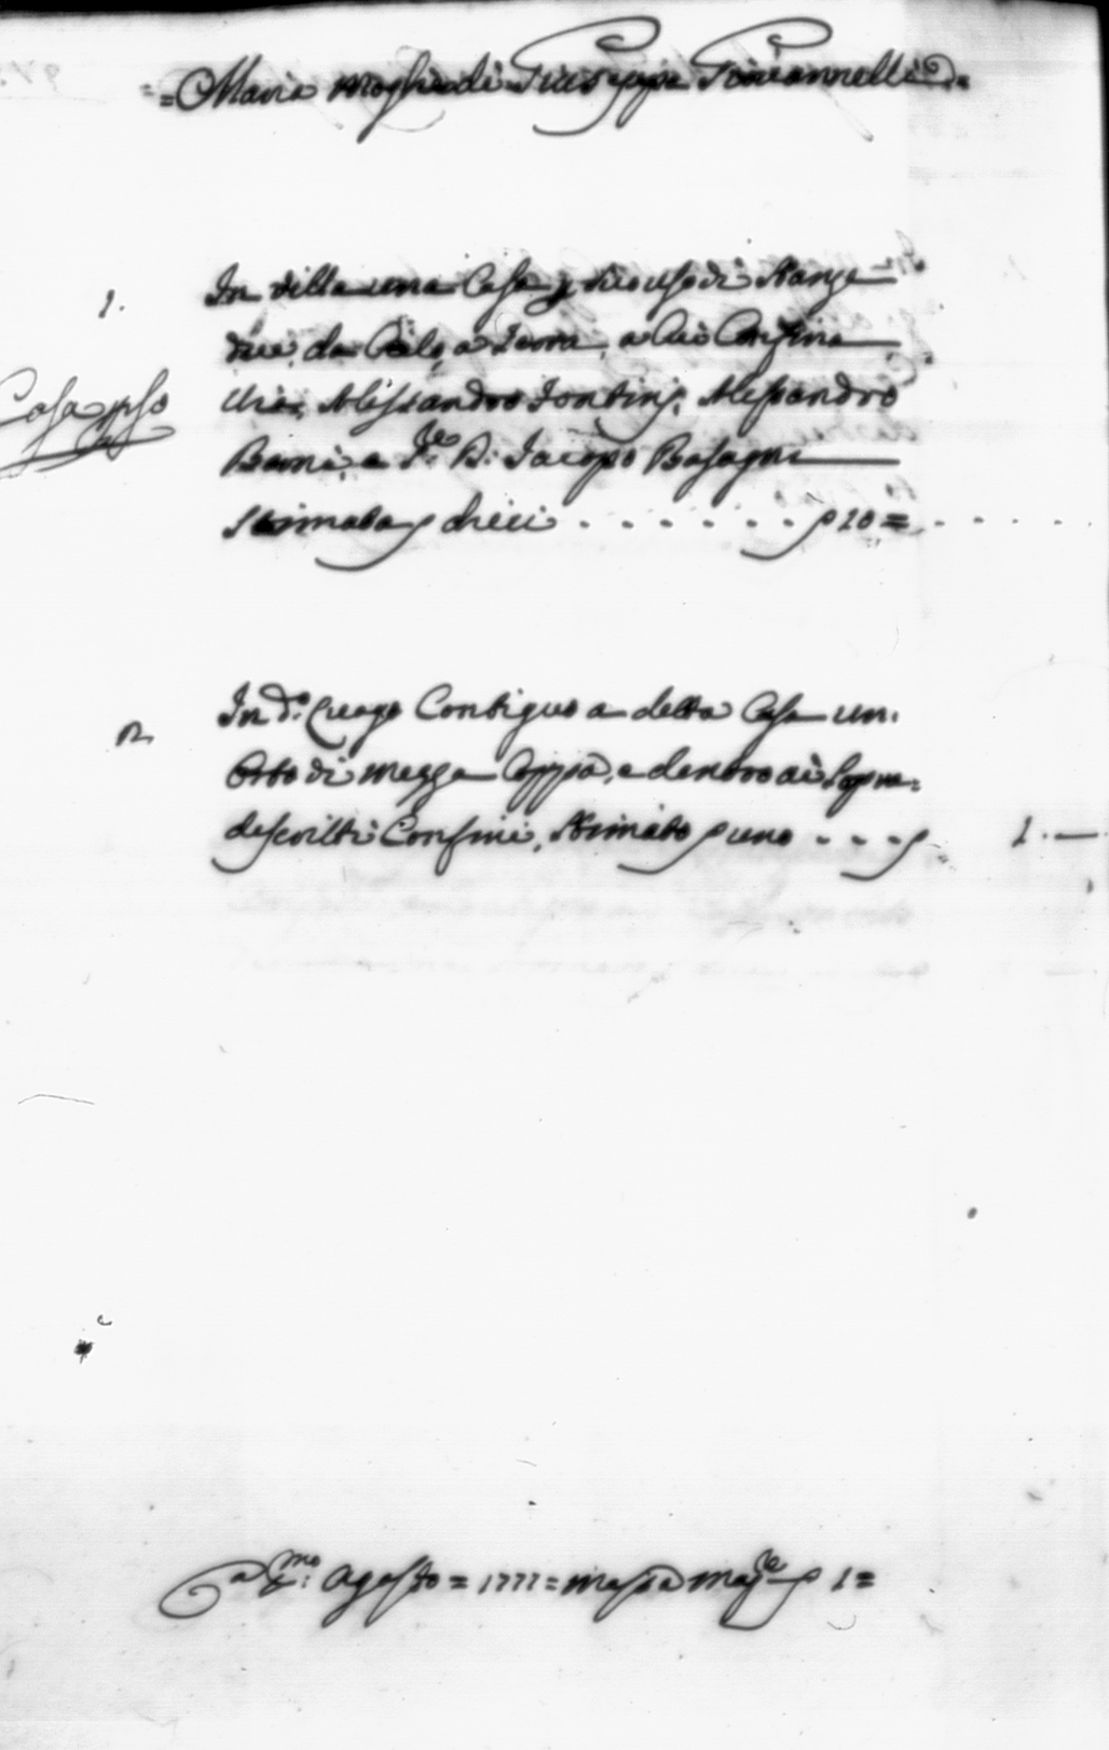 =Maria moglie di Giuseppe Giovannelli=
1. In Villa una Casa p suo uso di Stanze
due, da Cielo a Terra, a Cui Confina
Casa pso
Via, Alissandro Fontini, Alessandro
Bami, e Sr. D. Jacopo Basagni
Stimata p dieci . . . . . . . p 10 = . . . . .
2. In do. Luogo Contiguo a detta Casa un
Orto di mezza Coppa, e dentro ai Sopra=
descritti Confini, Stimato p uno . . . p 1. —
A pmo: Agosto = 1777 = massa magre p 1=